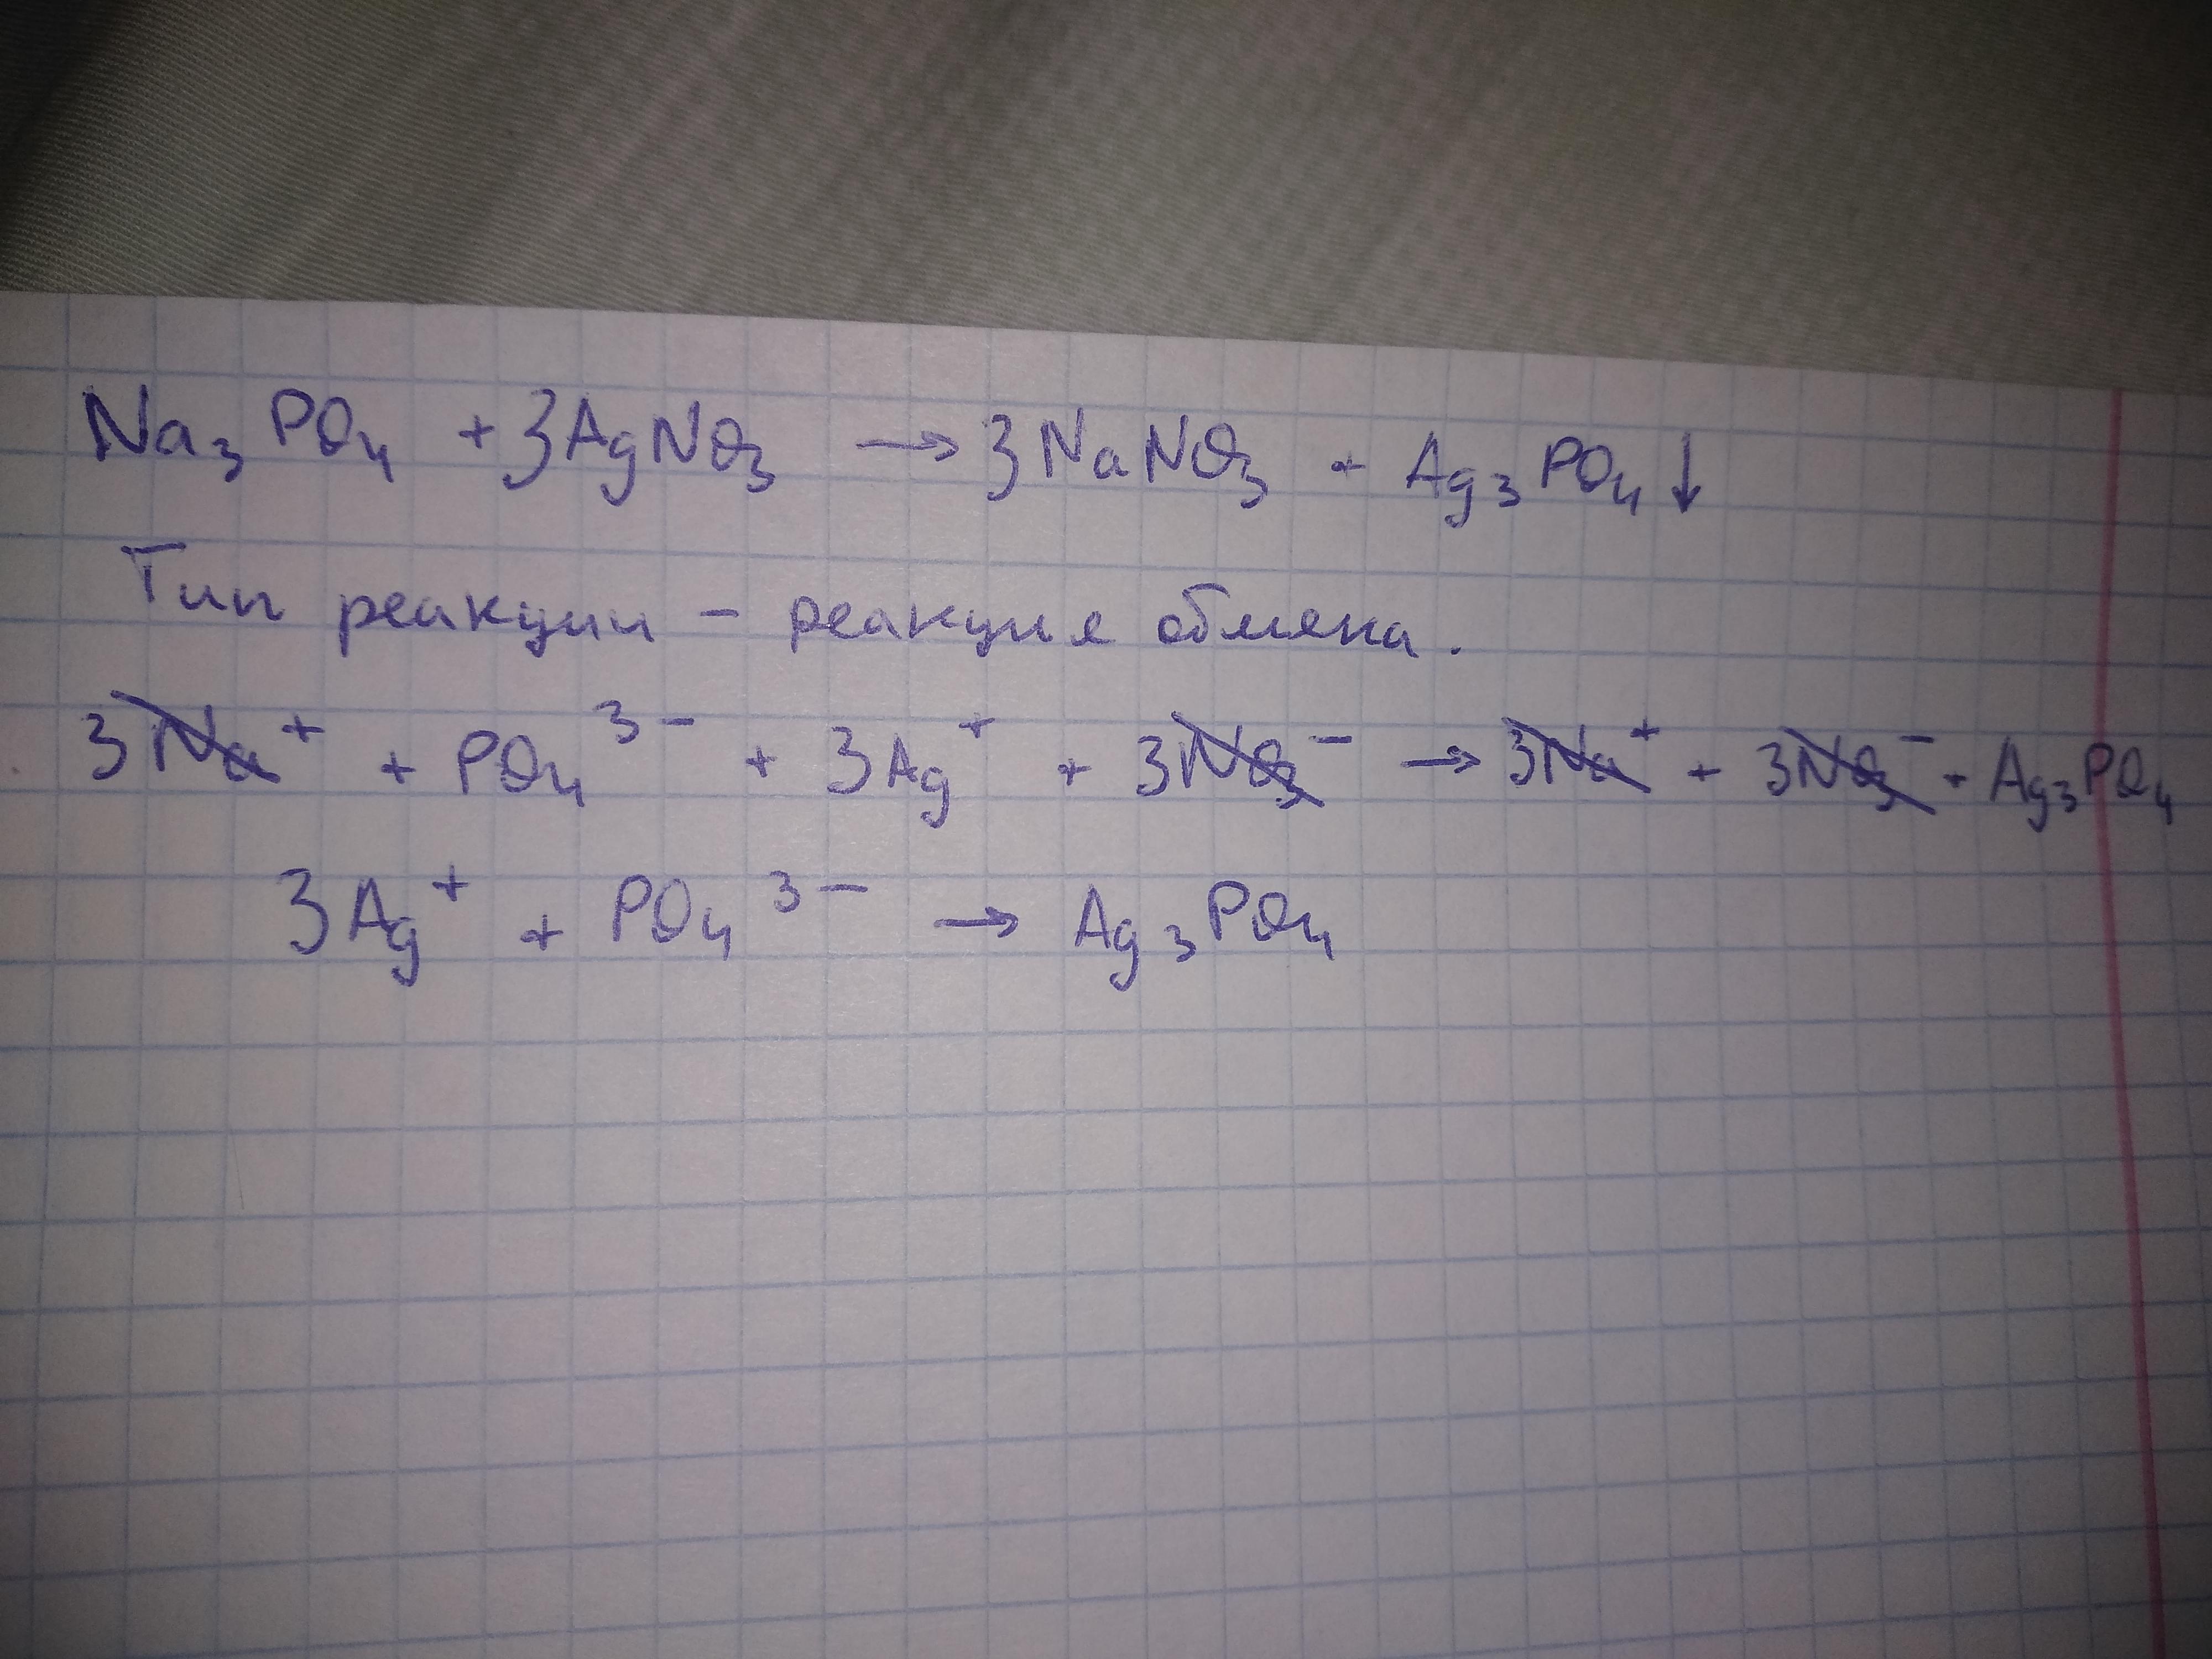 Na₃PO₄ + 3AgNO₃ → 3NaNO₃ + Ag₃PO₄↓
Тип реакции – реакция обмена.
3Na⁺ + PO₄³⁻ + 3Ag⁺ + 3NO₃⁻ → 3Na⁺ + 3NO₃⁻ + Ag₃PO₄
3Ag⁺ + PO₄³⁻ → Ag₃PO₄